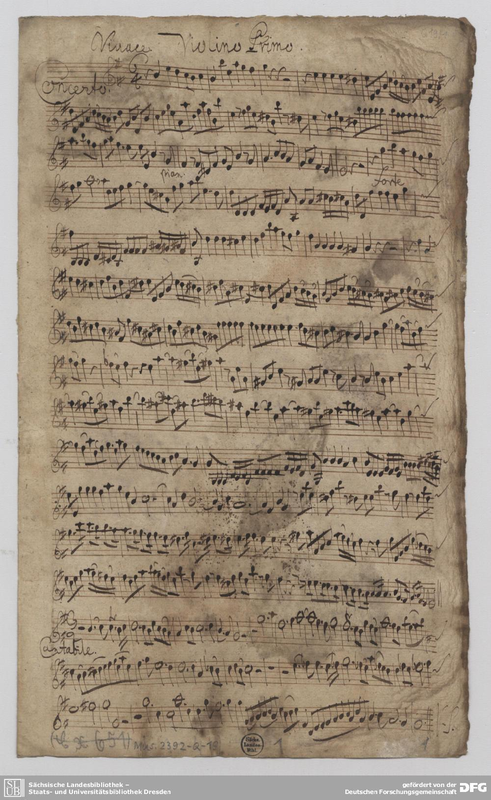 Violino Primo.
Concerto.
pian.
forte
Cantabile.
Mus. 2392-Q-
1
1
Sächsische Landesbibliothek –
Staats- und Universitätsbibliothek Dresden
gefördert von der
Deutschen Forschungsgemeinschaft
DFG